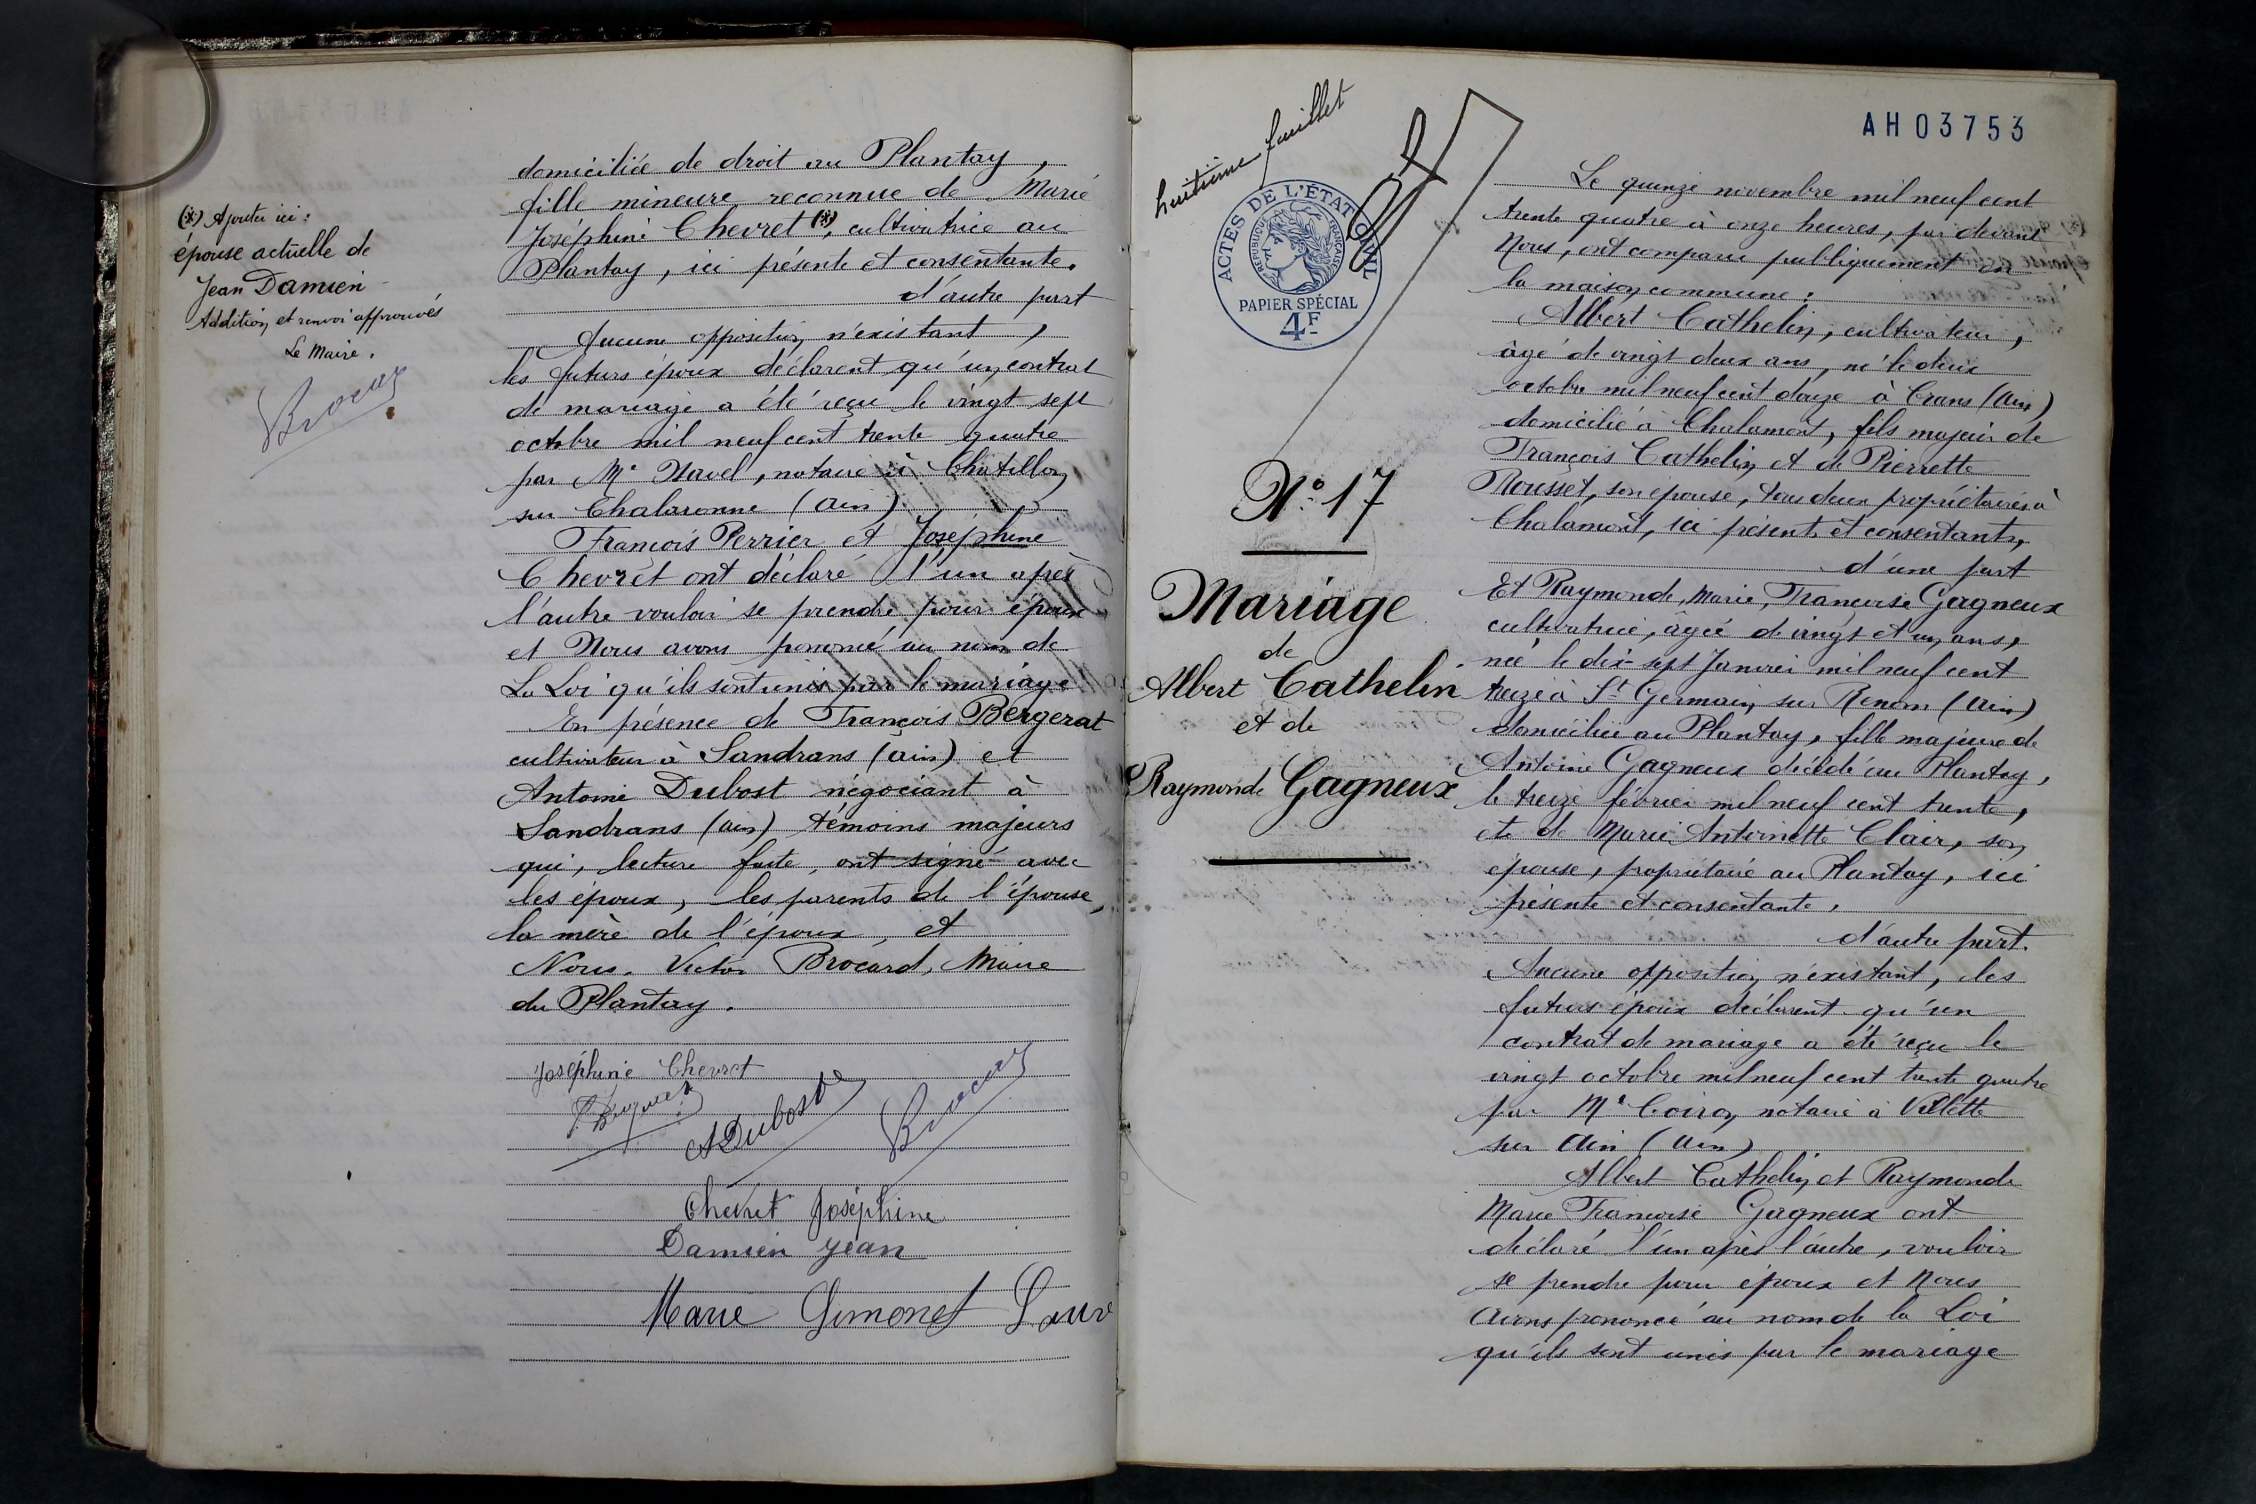 (*) Ajouter ici :
épouse actuelle de
Jean Damien
Addition et renvoi approuvés
Le Maire.
Brocard
domiciliée de droit au Plantay,
fille mineure reconnue de Marie
Joséphine Chevret (*), cultivatrice au
Plantay, ici présente et consentante.
d'autre part
Aucune opposition n'existant,
les futurs époux déclarent qu'un contrat
de mariage a été reçu le vingt sept
octobre mil neuf cent trente quatre
par Me Navel, notaire à Châtillon
sur Chalaronne (Ain)
François Perrier et Joséphine
Chevret ont déclaré l'un après
l'autre vouloir se prendre pour époux
et Nous avons prononcé au nom de
La Loi qu'ils sont unis par le mariage
En présence de François Bergerat
cultivateur à Sandrans (Ain) et
Antoine Dubost négociant à
Sandrans (Ain) témoins majeurs
qui, lecture faite, ont signé avec
les époux, les parents de l'épouse,
la mère de l'époux, et
Nous. Victor Brocard, Maire
du Plantay.
Joséphine Chevret
ADubost
Brocard
Chevret Joséphine
Damien Jean
Marie Gimonet
huitième feuillet
ACTES DE L'ÉTAT CIVIL
RÉPUBLIQUE FRANÇAISE
PAPIER SPÉCIAL
4F
No 17
Mariage
de
Albert Cathelin
et de
Raymonde Gagneux
AH03753
Le quinze novembre mil neuf cent
trente quatre à onze heures, par devant
Nous, ont comparu publiquement en
la maison commune :
Albert Cathelin, cultivateur,
âgé de vingt deux ans, né le deux
octobre mil neuf cent douze à Crans (Ain)
domicilié à Chalamont, fils majeur de
François Cathelin et de Pierrette
Rousset, son épouse, tous deux propriétaires à
Chalamont, ici présents et consentants,
d'une part
Et Raymonde, Marie, Françoise Gagneux
cultivatrice, âgée de vingt et un ans,
née le dix-sept Janvier mil neuf cent
treize à St Germain sur Renom (Ain)
domiciliée au Plantay, fille majeure de
Antoine Gagneux décédé au Plantay,
le treize février mil neuf cent trente,
et de Marie Antoinette Clair, son
épouse, propriétaire au Plantay, ici
présente et consentante,
d'autre part.
Aucune opposition n'existant, les
futurs époux déclarent qu'un
contrat de mariage a été reçu le
vingt octobre mil neuf cent trente quatre
par Me Coiron notaire à Villette
sur Ain (Ain)
Albert Cathelin et Raymonde
Marie Françoise Gagneux ont
déclaré l'un après l'autre, vouloir
se prendre pour époux et Nous
avons prononcé au nom de la Loi
qu'ils sont unis par le mariage